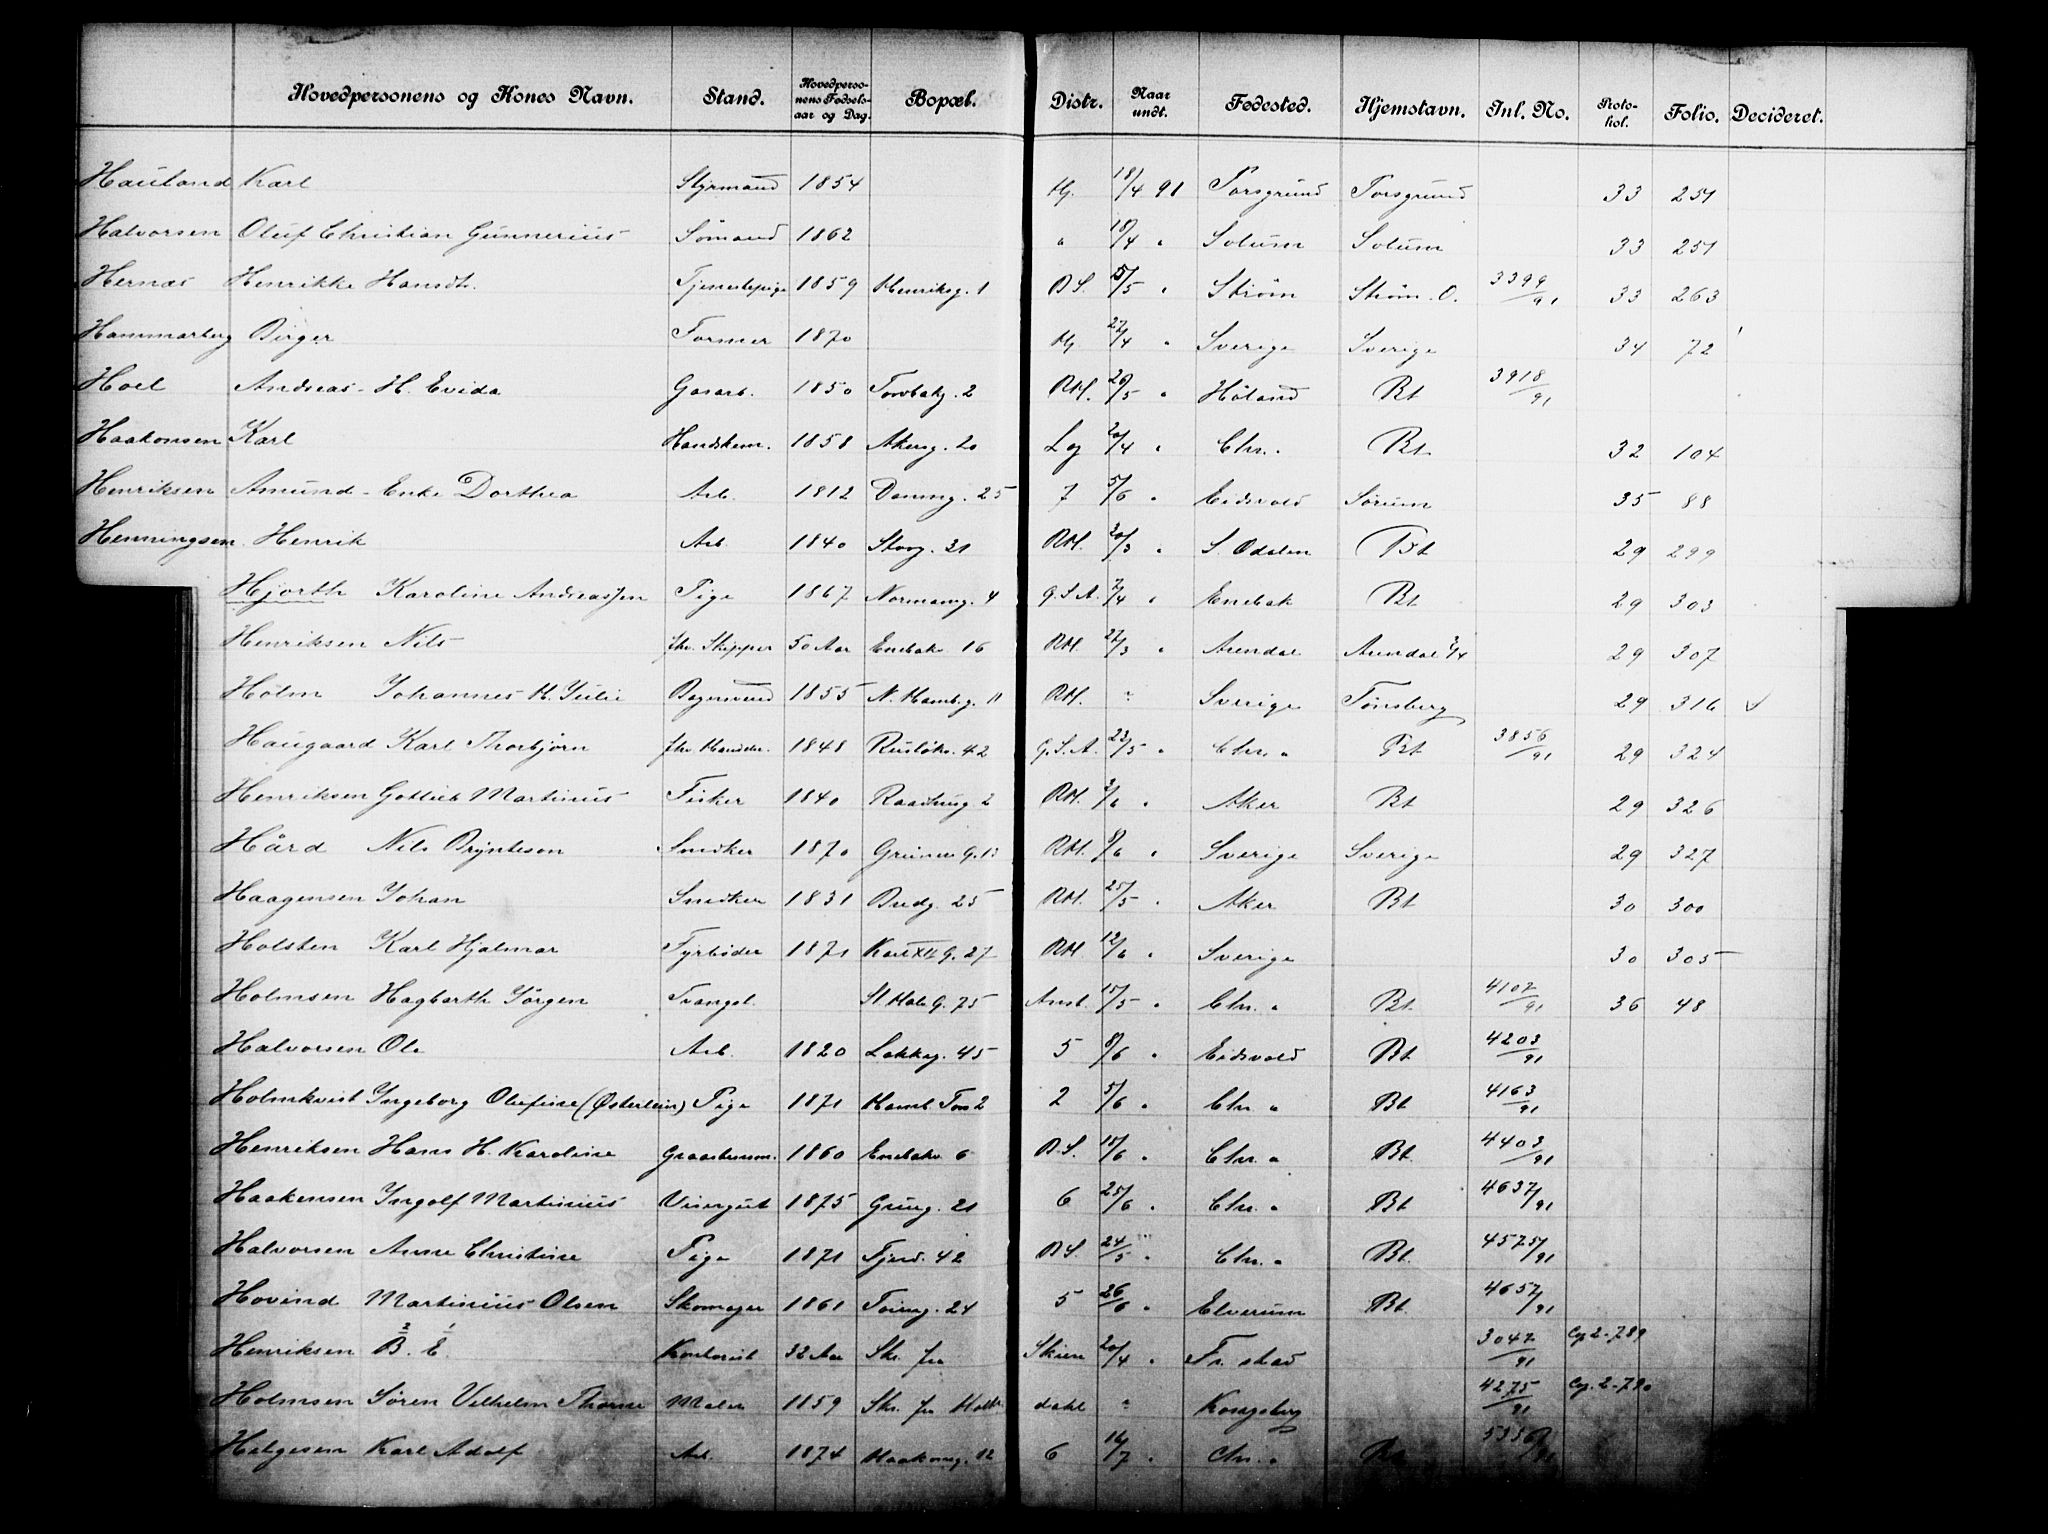 Hovedpersonens og Kones Navn. Stand. Hovedpersonens Fødselsaar og Dag. Bopæl. Distr. Naar undt. Fødested. Hjemstavn. Inl. No. Protokol. Folio. Decideret.
Hauland Karl Styrmand 1854 Hj. 18/4 91 Porsgrund Porsgrund 33 251
Halvorsen Oluf Christian Gunnerius Sømand 1862 " 18/4 " Solum Solum 33 251
Hernæs Henrikke Hansdt. Tjenestepige 1859 Henriksg. 1 B.S. 5/5 " Strøm Strøm. O. 3399/91 33 263
Hammarberg Birger Former 1870 Hj 22/4 " Sverige Sverige 34 72
Hoel Andreas - H. Evida Gasarb. 1850 Torvbakg. 2 RH. 20/5 " Høland Bt 3918/91
Haakonsen Karl Handskem. 1858 Akersg. 20 Log 20/4 " Chr. Bt. 32 104
Henriksen Amund - Enke Dorthea Arb. 1812 Dronng. 25 7 5/6 " Eidsvold Sørum 35 88
Henningsen Henrik Arb. 1840 Storg. 31 RH. 20/3 " S. Odalen Bt 29 299
Hjorth Karoline Andreassen Pige 1867 Normansg. 4 G.S.A. 7/4 " Enebak Bt 29 303
Henriksen Nils fhv. Skipper 50 Aar Enebakv 16 RH. 27/3 " Arendal Arendal 29 307
Holm Johannes H. Julie Bagersvend 1855 N. Hamb.g. 11 RH. " Sverige Tønsberg 29 316
Haugaard Karl Thorbjørn fhv Handler. 1848 Ruseløkv. 42 G.S.A. 23/5 " Chr. " Bt 3856/91 29 324
Henriksen Gotlieb Martinius Fisker 1840 Raadhusg 2 RH. 3/6 " Aker Bt 29 326
Hård Nils Brynteson Snedker 1870 Grüners G. 13 RH. 8/6 " Sverige Sverige 29 327
Haagensen Johan Snedker 1831 Bredg. 25 RH. 25/5 " Aker Bt 30 300
Holsten Karl Hjalmar Fyrbøder 1871 Karl XII G. 27 RH 12/6 " Sverige 30 305
Holmsen Hagbarth Jørgen Tvangsl. St. Hal. G. 75 Anst. 15/5 " Chr. " Bt. 4107/91 36 48
Halvorsen Ole Arb. 1820 Lakkeg. 45 5 8/6 " Eidsvold Bt 4203/91
Holmkvist Ingeborg Olufine (Østerlein) Pige 1871 Hamb. Torv 2 2 5/6 " Chr " Bt 4163/91
Henriksen Hans H. Karoline Graastensm. 1860 Enebakv 6 B.S. 15/6 " Chr. " Bt. 4403/91
Haakensen Ingolf Martinius Visergut 1875 Grüng. 21 6 25/6 " Chr. " Bt 4637/91
Halvorsen Anne Christine Pige 1871 Fjerd. 42 B.S. 24/5 " Chr. " Bt. 4575/91
Hovind Martinius Olsen Skomager 1861 Toieng. 24 5 26/6 " Elverum Bt. 4657/91
Henriksen B. E. Kontorist 32 Aar Skr. fra Skien 20/4 " Fr. stad 3047/91 Cop. 2-789
Holmsen Søren Vilhelm Thorne Maler 1859 Skr. fra Holtr dahl " Kongsberg 4275/91 Cop. 2-790
Helgesen Karl Adolf Arb. 1874 Haakonsg. 12 6 16/7 " Chr. " Bt